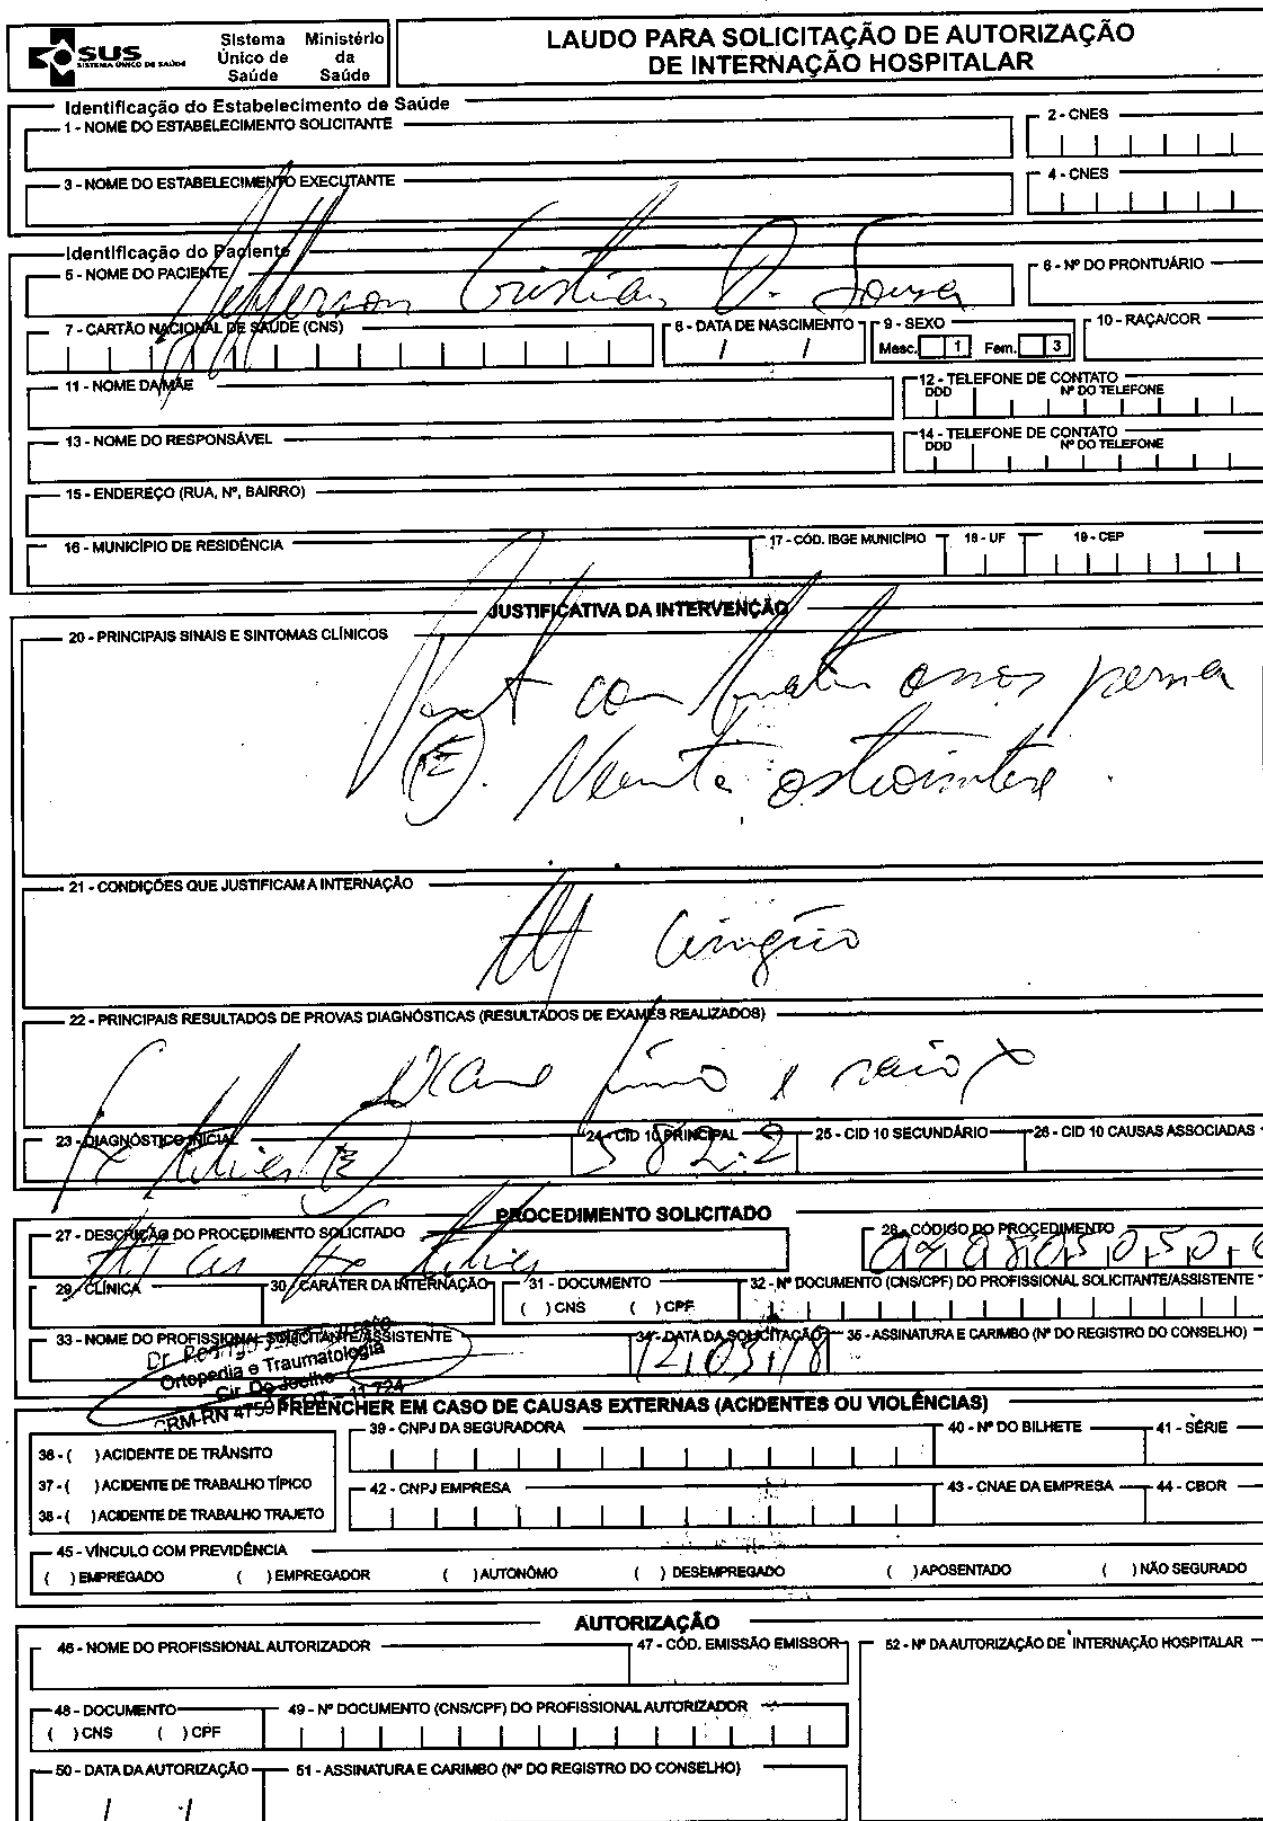 SUS
SISTEMA ÚNICO DE SAÚDE
Sistema Único de Saúde
Ministério da Saúde
LAUDO PARA SOLICITAÇÃO DE AUTORIZAÇÃO
DE INTERNAÇÃO HOSPITALAR
Identificação do Estabelecimento de Saúde
1 - NOME DO ESTABELECIMENTO SOLICITANTE 2 - CNES
3 - NOME DO ESTABELECIMENTO EXECUTANTE 4 - CNES
Identificação do Paciente
5 - NOME DO PACIENTE 6 - Nº DO PRONTUÁRIO
Jefferson Cristian D. Sousa
7 - CARTÃO NACIONAL DE SAÚDE (CNS) 8 - DATA DE NASCIMENTO 9 - SEXO 10 - RAÇA/COR
/ / Masc. 1 Fem. 3
11 - NOME DA MÃE 12 - TELEFONE DE CONTATO
DDD Nº DO TELEFONE
13 - NOME DO RESPONSÁVEL 14 - TELEFONE DE CONTATO
DDD Nº DO TELEFONE
15 - ENDEREÇO (RUA, Nº, BAIRRO)
16 - MUNICÍPIO DE RESIDÊNCIA 17 - CÓD. IBGE MUNICÍPIO 18 - UF 19 - CEP
JUSTIFICATIVA DA INTERVENÇÃO
20 - PRINCIPAIS SINAIS E SINTOMAS CLÍNICOS
com ossos perna
(E).
21 - CONDIÇÕES QUE JUSTIFICAM A INTERNAÇÃO
Cirúrgico
22 - PRINCIPAIS RESULTADOS DE PROVAS DIAGNÓSTICAS (RESULTADOS DE EXAMES REALIZADOS)
Exame físico e raio X
23 - DIAGNÓSTICO INICIAL 24 - CID 10 PRINCIPAL 25 - CID 10 SECUNDÁRIO 26 - CID 10 CAUSAS ASSOCIADAS
Fx (E) S82.2
PROCEDIMENTO SOLICITADO
27 - DESCRIÇÃO DO PROCEDIMENTO SOLICITADO 28 - CÓDIGO DO PROCEDIMENTO
29 - CLÍNICA 30 - CARÁTER DA INTERNAÇÃO 31 - DOCUMENTO 32 - Nº DOCUMENTO (CNS/CPF) DO PROFISSIONAL SOLICITANTE/ASSISTENTE
( ) CNS ( ) CPF
33 - NOME DO PROFISSIONAL SOLICITANTE/ASSISTENTE 34 - DATA DA SOLICITAÇÃO 35 - ASSINATURA E CARIMBO (Nº DO REGISTRO DO CONSELHO)
12/03/18
Dr. Rodrigo
Ortopedia e Traumatologia
Cir. Do Joelho
CRM-RN 4759 11 724
PREENCHER EM CASO DE CAUSAS EXTERNAS (ACIDENTES OU VIOLÊNCIAS)
36 - ( ) ACIDENTE DE TRÂNSITO 39 - CNPJ DA SEGURADORA 40 - Nº DO BILHETE 41 - SÉRIE
37 - ( ) ACIDENTE DE TRABALHO TÍPICO 42 - CNPJ EMPRESA 43 - CNAE DA EMPRESA 44 - CBOR
38 - ( ) ACIDENTE DE TRABALHO TRAJETO
45 - VÍNCULO COM PREVIDÊNCIA
( ) EMPREGADO ( ) EMPREGADOR ( ) AUTONÔMO ( ) DESEMPREGADO ( ) APOSENTADO ( ) NÃO SEGURADO
AUTORIZAÇÃO
46 - NOME DO PROFISSIONAL AUTORIZADOR 47 - CÓD. EMISSÃO EMISSOR 52 - Nº DA AUTORIZAÇÃO DE INTERNAÇÃO HOSPITALAR
48 - DOCUMENTO 49 - Nº DOCUMENTO (CNS/CPF) DO PROFISSIONAL AUTORIZADOR
( ) CNS ( ) CPF
50 - DATA DA AUTORIZAÇÃO 51 - ASSINATURA E CARIMBO (Nº DO REGISTRO DO CONSELHO)
/ /